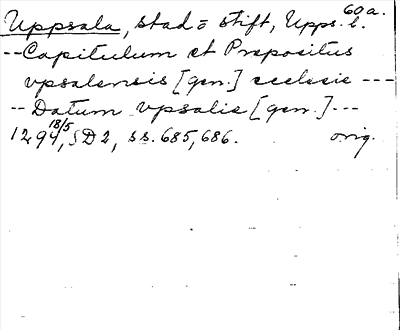 60a.
Uppsala, stad = stift, Upps. l.
-- Capitulum et Prepositus
vpsalensis [gen.] ecclesie ---
-- Datum vpsalie [gen.] ---
1294 18/5, SD 2, ss. 685, 686. orig.